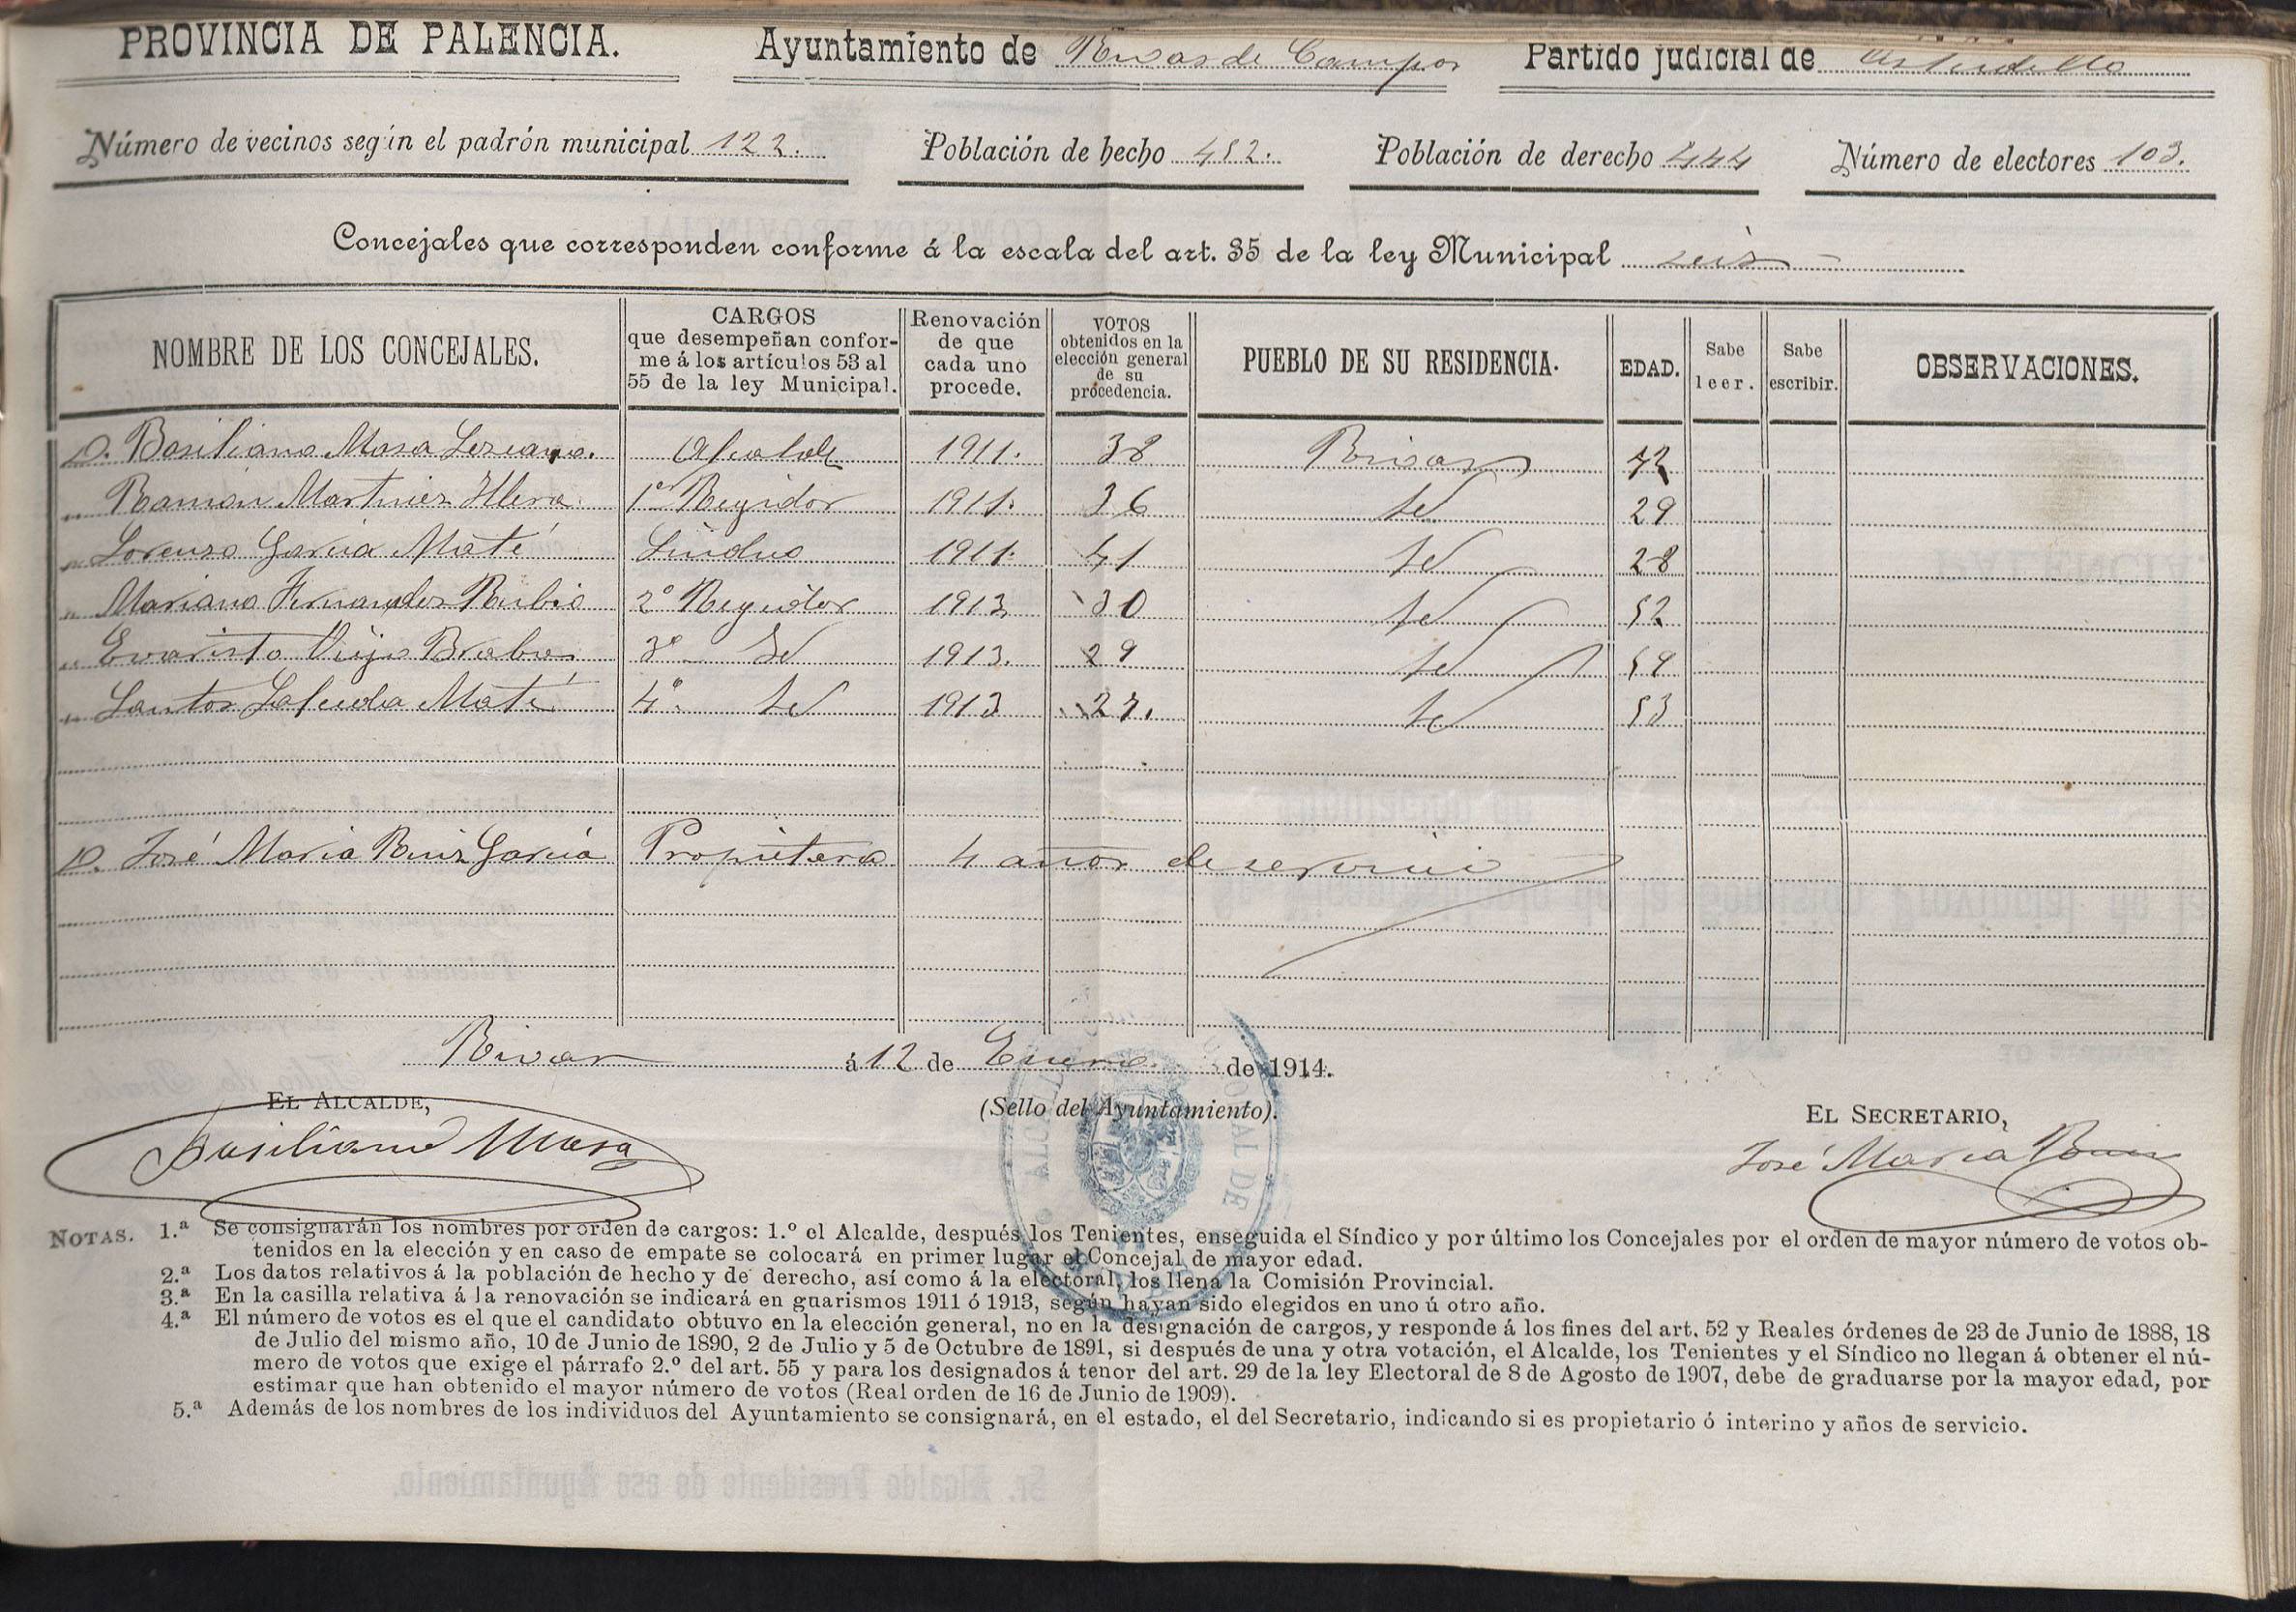 PROVINCIA DE PALENCIA. Ayuntamiento de Rivas de Campos Partido judicial de Astudillo
Número de vecinos según el padrón municipal 122. Población de hecho 452. Población de derecho 444 Número de electores 103.
Concejales que corresponden conforme á la escala del art. 35 de la ley Municipal seis
NOMBRE DE LOS CONCEJALES.
CARGOS
que desempeñan confor-
me á los artículos 53 al
55 de la ley Municipal.
Renovación
de que
cada uno
procede.
VOTOS
obtenidos en la
elección general
de su
procedencia.
PUEBLO DE SU RESIDENCIA.
EDAD.
Sabe
leer.
Sabe
escribir.
OBSERVACIONES.
D. Basiliano Masa Lezcano. Alcalde 1911. 38 Rivas 42
" Ramón Martinez Illera 1er Regidor 1911. 36 id 29
" Lorenzo García Maté Sindico 1911. 41 id 28
" Mariano Fernandez Rubio 2º Regidor 1913 30 id 52
" Evaristo Brabo 3º id 1913. 29 id 59
" Santos Maté 4º. id 1913 27. id 53
D. José María Ruiz García Propietario 4 años de servicio
Rivas á 12 de Enero de 1914.
EL ALCALDE,
(Sello del Ayuntamiento).
EL SECRETARIO,
Basiliano Masa
José María Ruiz
NOTAS. 1.ª Se consignarán los nombres por orden de cargos: 1.º el Alcalde, después los Tenientes, enseguida el Síndico y por último los Concejales por el orden de mayor número de votos ob-
tenidos en la elección y en caso de empate se colocará en primer lugar el Concejal de mayor edad.
2.ª Los datos relativos á la población de hecho y de derecho, así como á la electoral, los llena la Comisión Provincial.
3.ª En la casilla relativa á la renovación se indicará en guarismos 1911 ó 1913, según hayan sido elegidos en uno ú otro año.
4.ª El número de votos es el que el candidato obtuvo en la elección general, no en la designación de cargos, y responde á los fines del art. 52 y Reales órdenes de 23 de Junio de 1888, 18
de Julio del mismo año, 10 de Junio de 1890, 2 de Julio y 5 de Octubre de 1891, si después de una y otra votación, el Alcalde, los Tenientes y el Síndico no llegan á obtener el nú-
mero de votos que exige el párrafo 2.º del art. 55 y para los designados á tenor del art. 29 de la ley Electoral de 8 de Agosto de 1907, debe de graduarse por la mayor edad, por
estimar que han obtenido el mayor número de votos (Real orden de 16 de Junio de 1909).
5.ª Además de los nombres de los individuos del Ayuntamiento se consignará, en el estado, el del Secretario, indicando si es propietario ó interino y años de servicio.